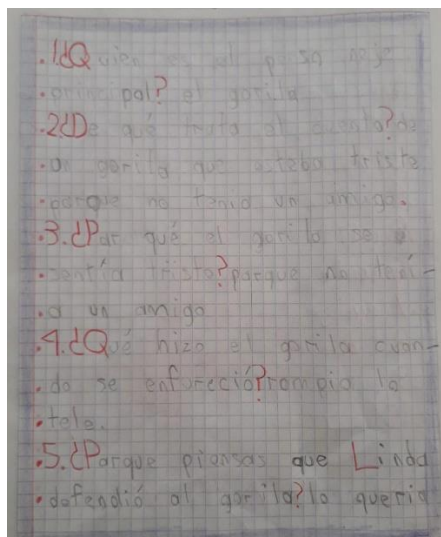 .1.¿Quien es el perso naje
.princi pal? el gorila
.2.¿De qué trata el cuento? de
.un gorila que estaba triste
.porque no tenia un amigo.
.3.¿Por qué el gorila se
.sentía triste? porque no tení-
.a un amigo
.4.¿Qué hizo el gorila cuan-
.do se enfureció? rompio la
.tele.
.5.¿Porque piensas que Linda
.defendió al gorila? lo queria